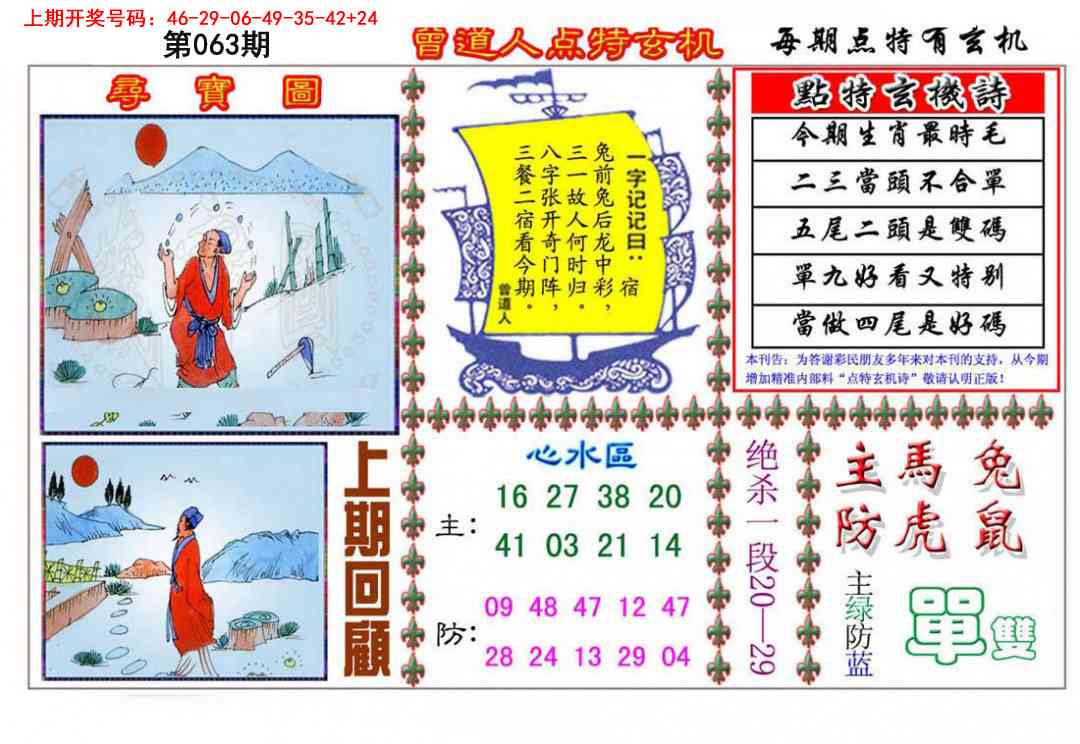 上期开奖号码：46-29-06-49-35-42+24
第063期
曾道人点特玄机
每期点特有玄机
尋寶圖
一字记记曰：宿
兔前兔后龙中彩，
三一故人何时归。
八字张开奇门阵，
三餐二宿看今期。
曾道人
點特玄機詩
今期生肖最時毛
二三當頭不合單
五尾二頭是雙碼
單九好看又特别
當做四尾是好碼
本刊告：为答谢彩民朋友多年来对本刊的支持，从今期
增加精准内部料“点特玄机诗”敬请认明正版！
上期回顧
心水區
主：
16 27 38 20
41 03 21 14
防：
09 48 47 12 47
28 24 13 29 04
绝杀一段20—29
主馬兔
防虎鼠
主绿防蓝
單雙